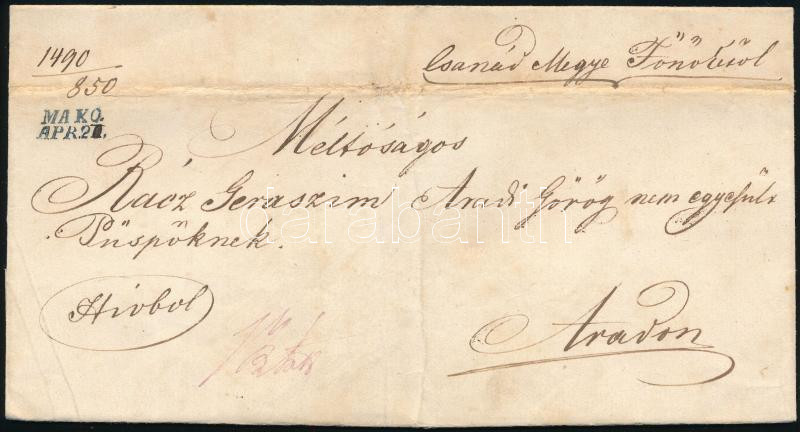 1490
850
Csanád Megye Főnökétől
MAKO.
APR.21.
Méltóságos
Rácz Geraszim Aradi Görög nem egyesült
Püspöknek.
Hivbol
Aradon
darabanth